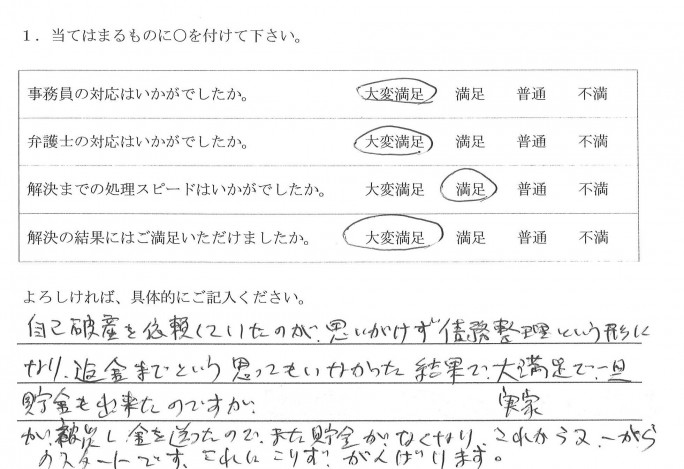 1．当てはまるものに○を付けて下さい。
事務員の対応はいかがでしたか。 大変満足 満足 普通 不満
弁護士の対応はいかがでしたか。 大変満足 満足 普通 不満
解決までの処理スピードはいかがでしたか。 大変満足 満足 普通 不満
解決の結果にはご満足いただけましたか。 大変満足 満足 普通 不満
よろしければ、具体的にご記入ください。
自己破産を依頼していたのが、思いがけず債務整理という形に
なり、返金までという思ってもいなかった結果で、大満足で、一旦
貯金も出来たのですが、 実家
が、被災し金を送ったので、また貯金がなくなり、これから又、一から
のスタートです、これにこりず、がんばります。